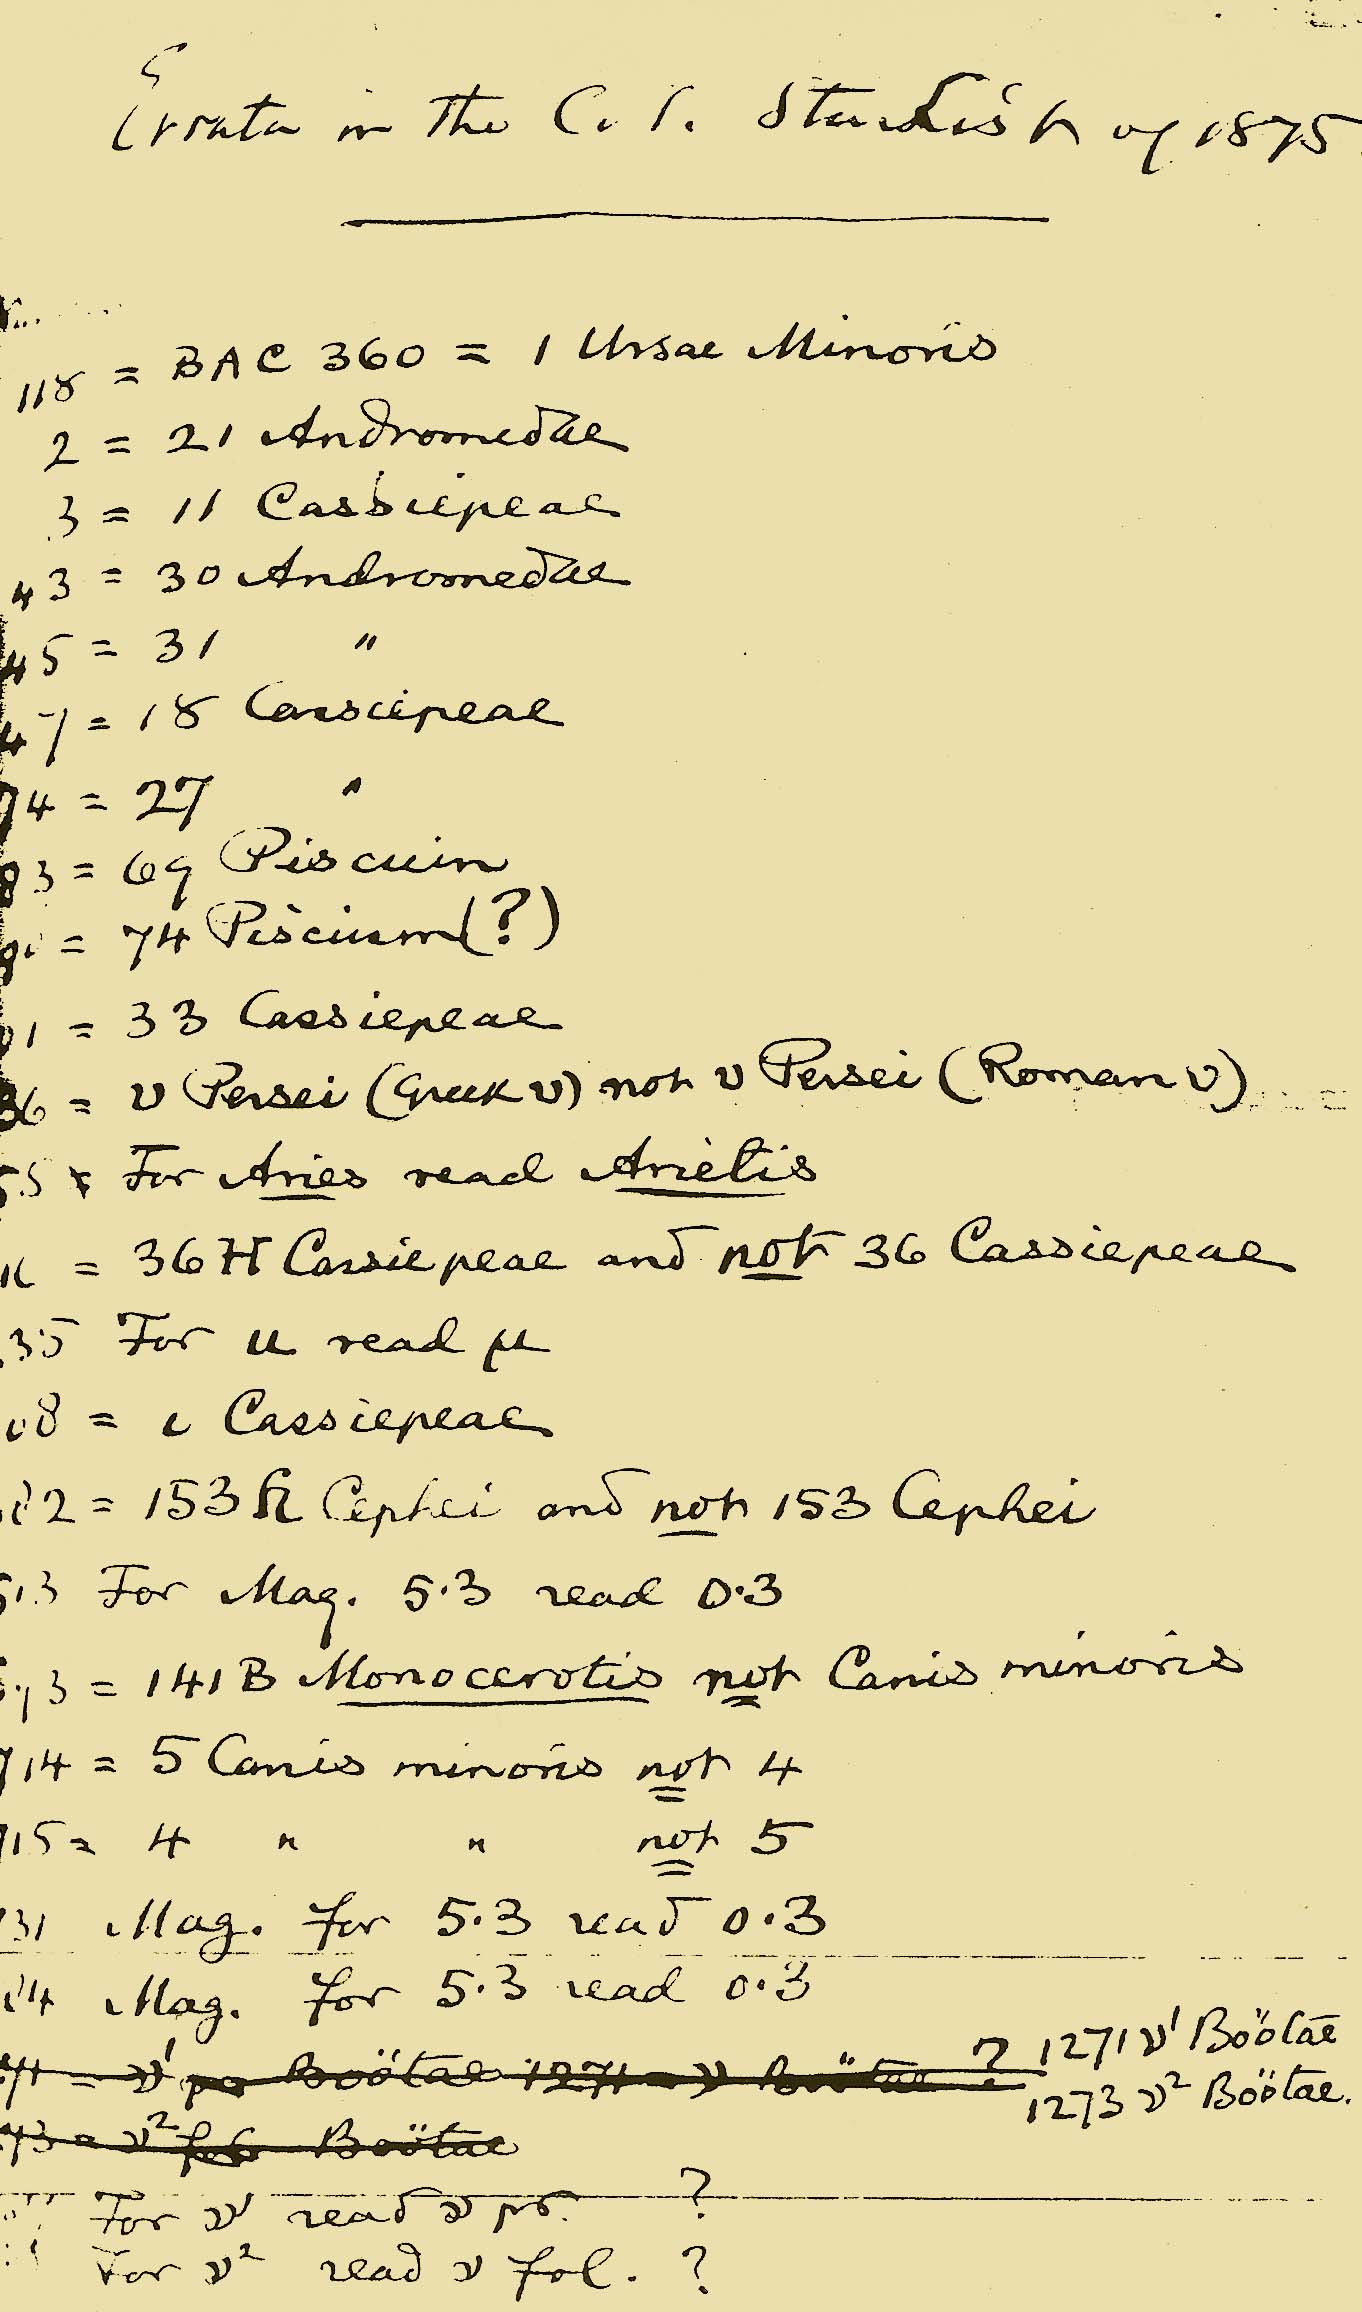 Errata in the C. P. Star List of 1875
118 = BAC 360 = 1 Ursae Minoris
2 = 21 Andromedae
3 = 11 Cassiepeae
43 = 30 Andromedae
45 = 31 "
47 = 18 Cassiepeae
74 = 27 "
83 = 69 Piscium
= 74 Piscium (?)
91 = 33 Cassiepeae
36 = υ Persei (Greek υ) not v Persei (Roman v)
For Aries read Arietis
= 36 H Cassiepeae and not 36 Cassiepeae
35 For u read μ
08 = ι Cassiepeae
2 = 153 H Cephei and not 153 Cephei
513 For Mag. 5.3 read 0.3
= 141 B Monocerotis not Canis minoris
714 = 5 Canis minoris not 4
715 = 4 " " not 5
731 Mag. for 5.3 read 0.3
Mag. for 5.3 read 0.3
71 = ν¹ pr Boötae 1271 = ν Boötae ? 1271 ν¹ Boötae
73 = ν² fol Boötae 1273 ν² Boötae.
For ν¹ read ν pr. ?
For ν² read ν fol. ?